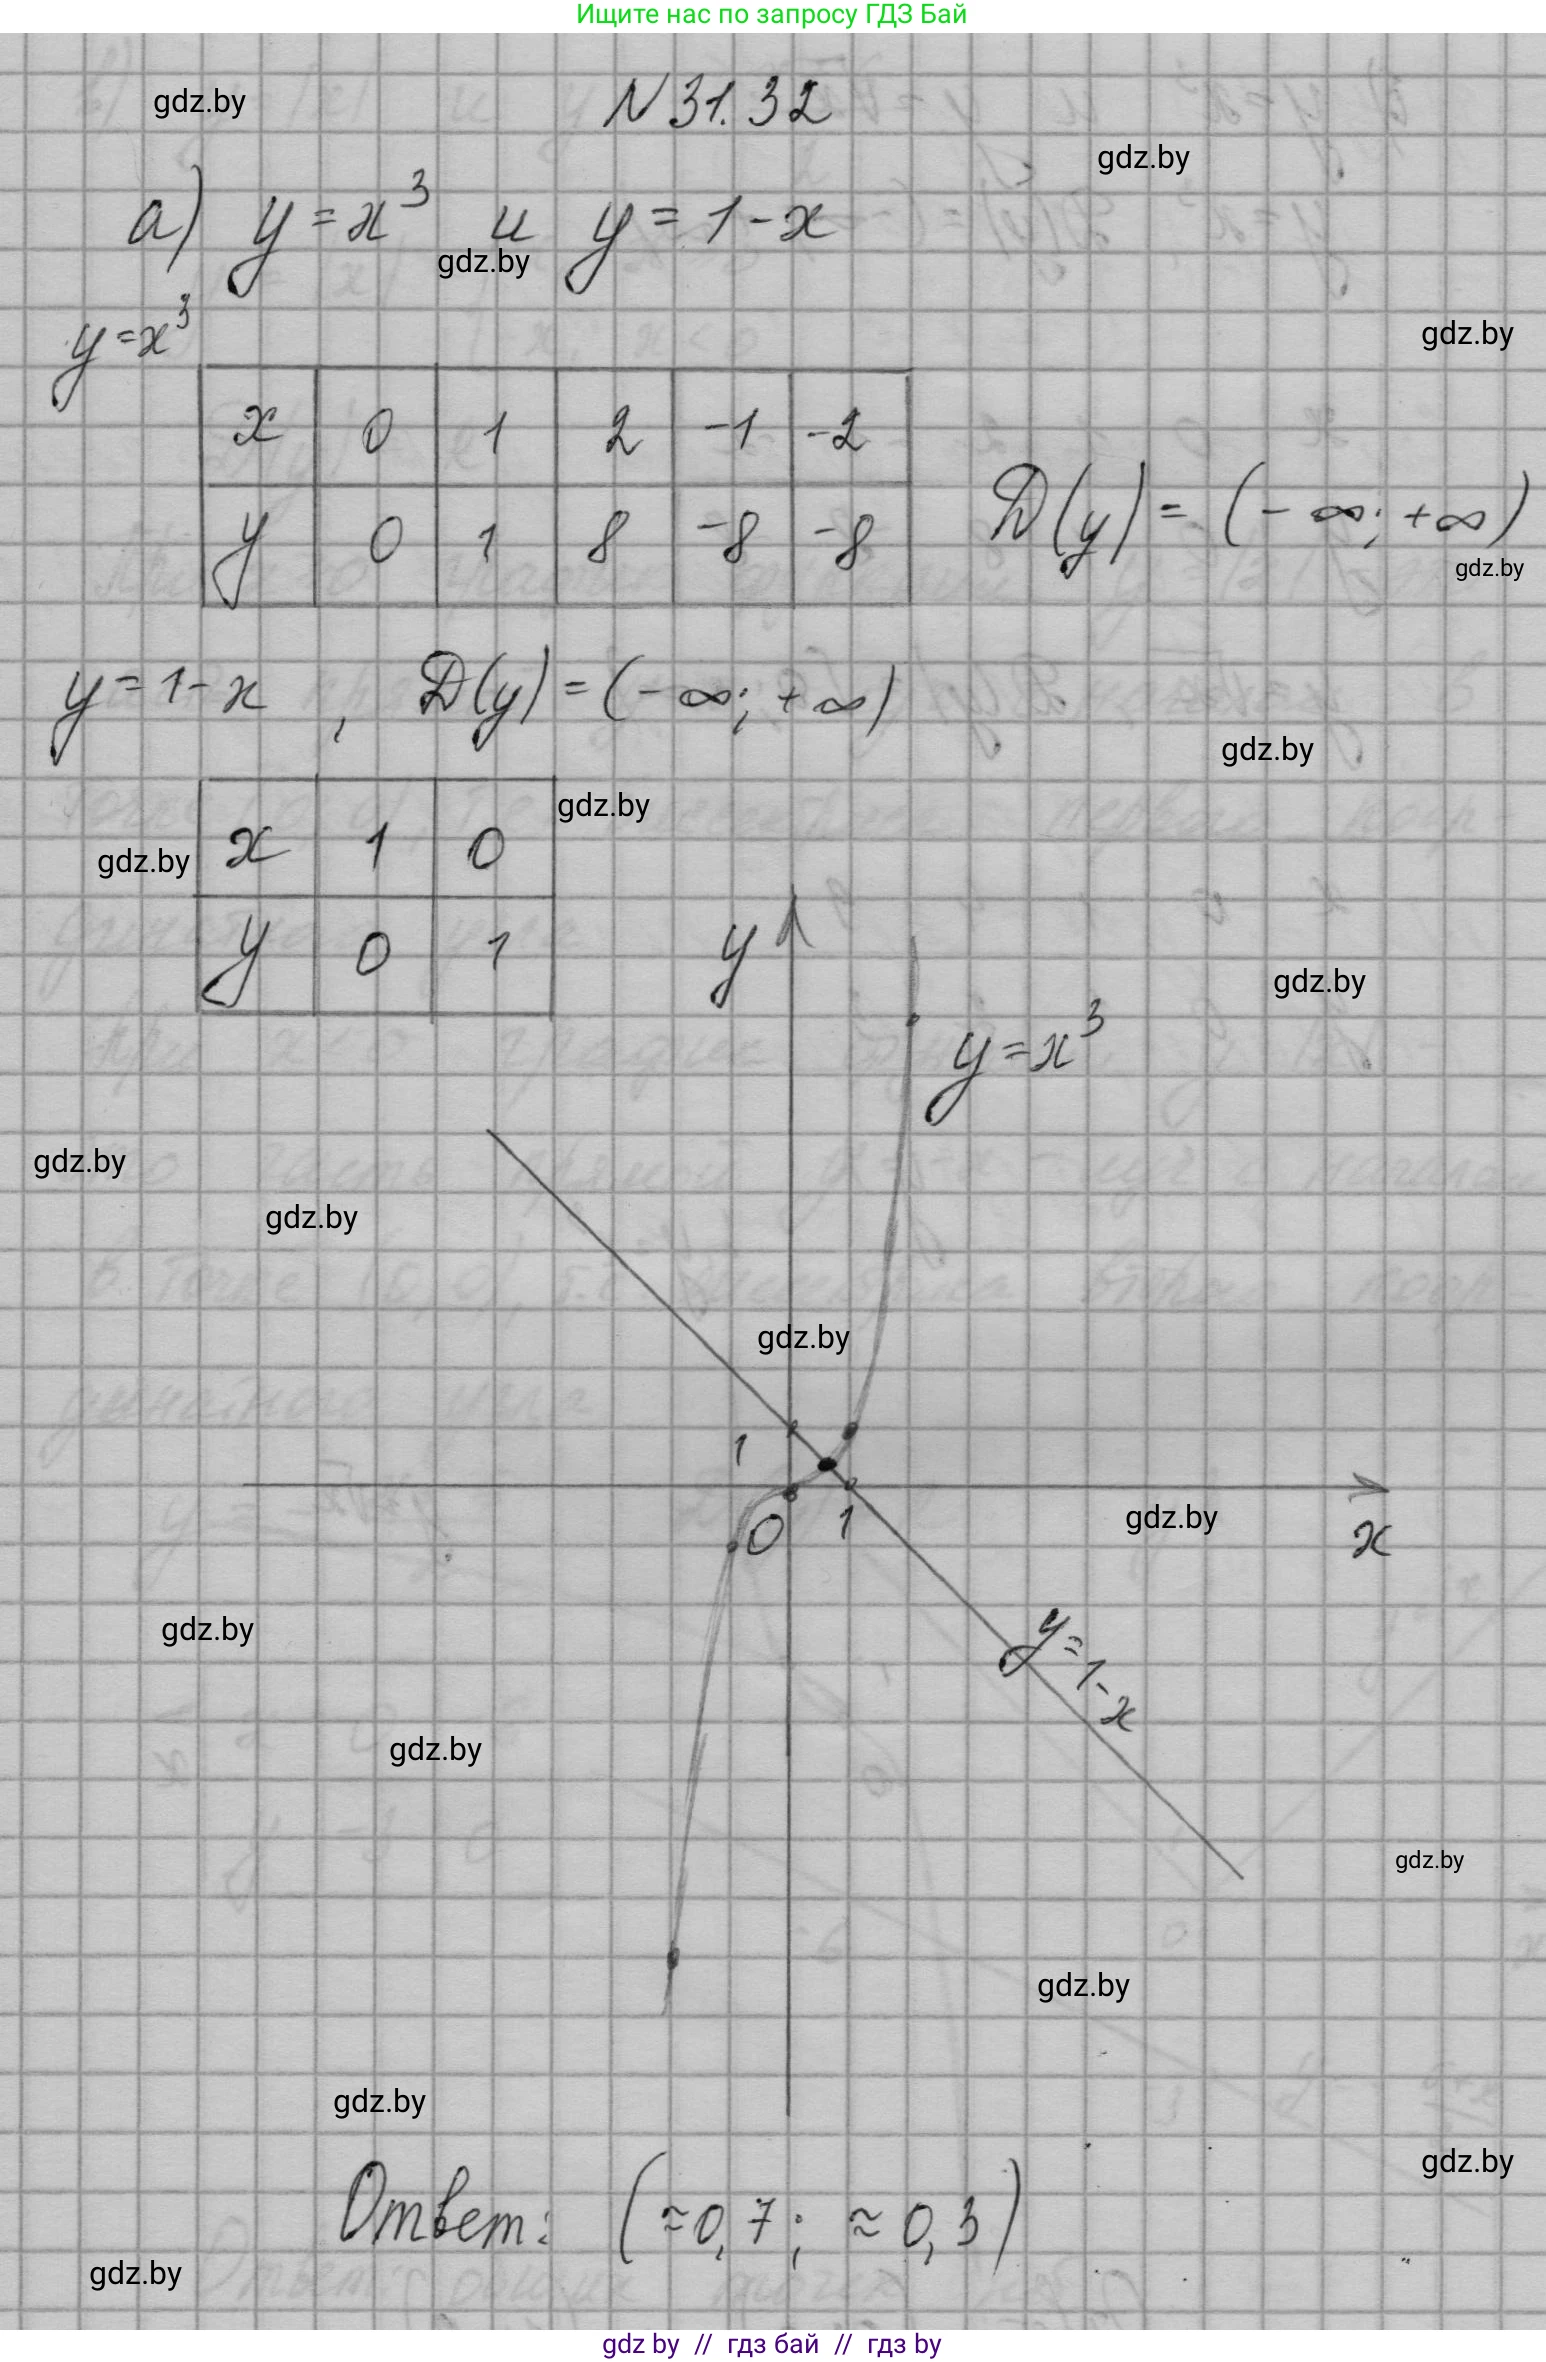 Ищите нас по запросу ГДЗ Бай
gdz.by
N 31.32
gdz.by
а) y = x³ и y = 1 - x
gdz.by
y = x³
gdz.by
x 0 1 2 -1 -2
y 0 1 8 -8 -8
D(y) = (-∞; +∞)
gdz.by
y = 1 - x , D(y) = (-∞; +∞)
gdz.by
gdz.by
x 1 0
gdz.by
y 0 1
y
gdz.by
y = x³
gdz.by
gdz.by
gdz.by
1
0
1
gdz.by
x
gdz.by
y = 1 - x
gdz.by
gdz.by
gdz.by
gdz.by
gdz.by
Ответ: (≈0,7; ≈0,3)
gdz.by
gdz by // гдз бай // гдз by